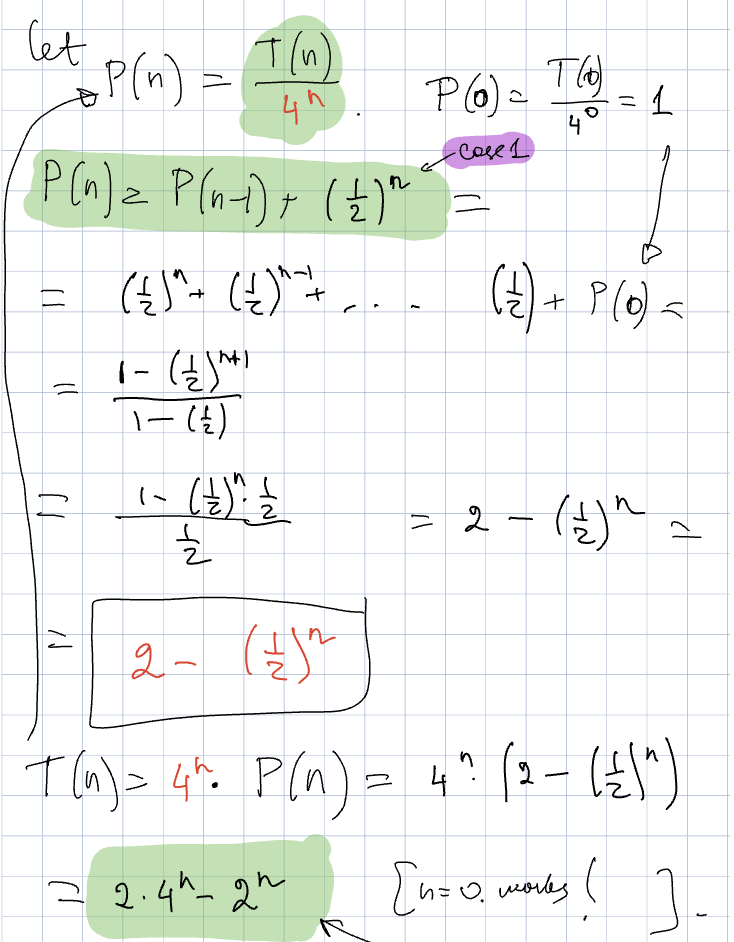 let P(n) = T(n)/4^n . P(0) = T(0)/4^0 = 1
case 1
P(n) = P(n-1) + (1/2)^n =
= (1/2)^n + (1/2)^(n-1) + .... (1/2) + P(0) =
= (1 - (1/2)^(n+1))/(1 - (1/2))
= (1 - (1/2)^n · 1/2)/(1/2) = 2 - (1/2)^n =
= 2 - (1/2)^n
T(n) = 4^n · P(n) = 4^n · (2 - (1/2)^n)
= 2 · 4^n - 2^n [n=0. works! ].